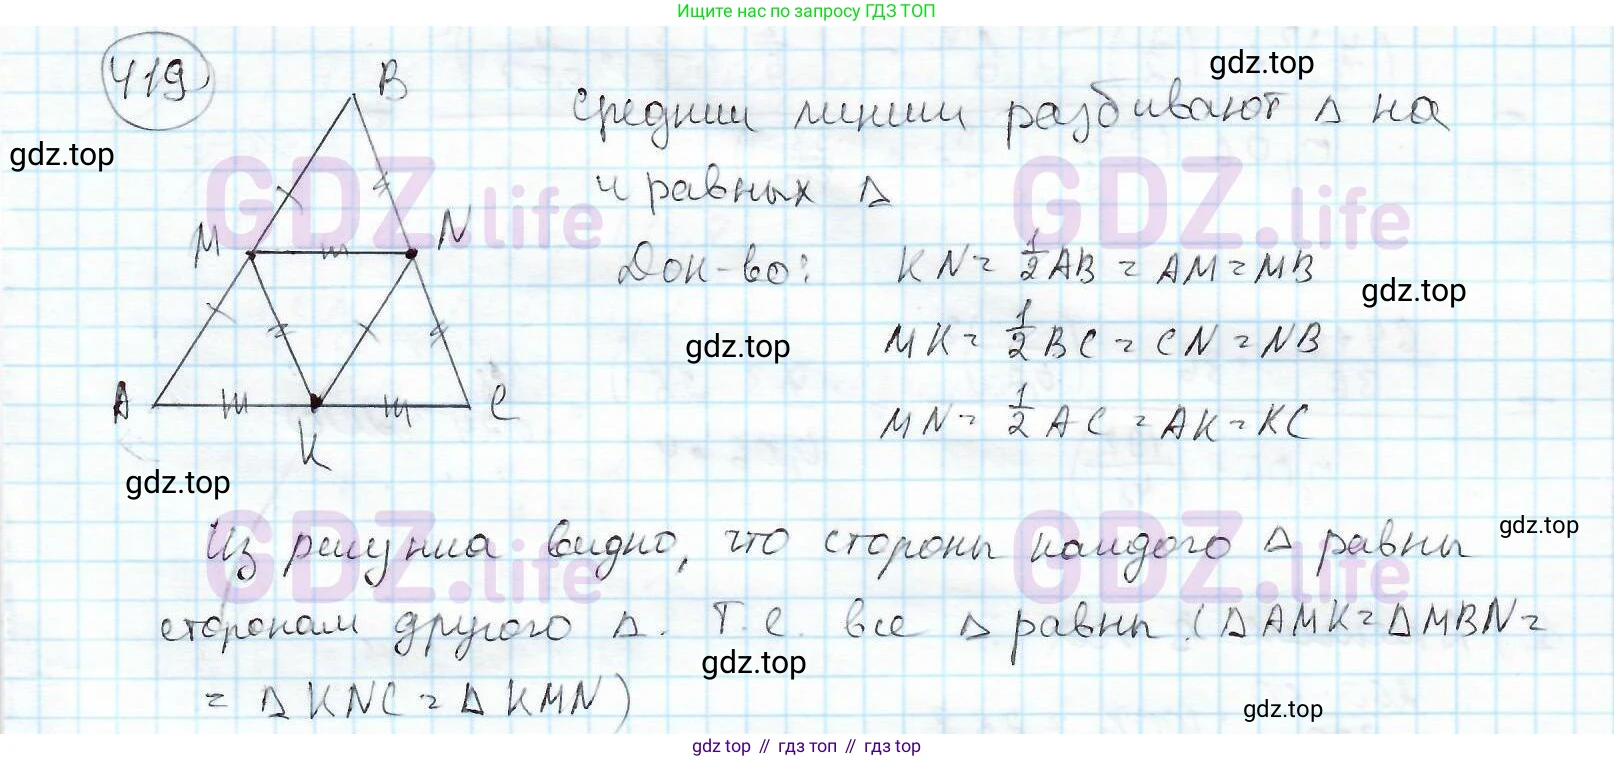 Ищите нас по запросу ГДЗ ТОП
419
B
средние линии разбивают Δ на
gdz.top
gdz.top
GDZ.life
GDZ.life
4 равных Δ
M
N
Док-во: KN = 1/2 AB = AM = MB
gdz.top
gdz.top
MK = 1/2 BC = CN = NB
A
C
MN = 1/2 AC = AK = KC
K
gdz.top
gdz.top
Из рисунка видно, что стороны каждого Δ равны
GDZ.life
GDZ.life
сторонам другого Δ. Т.е все Δ равны (Δ AMK = Δ MBN =
gdz.top
= Δ KNC = Δ KMN)
gdz.top
gdz top // гдз топ // гдз top